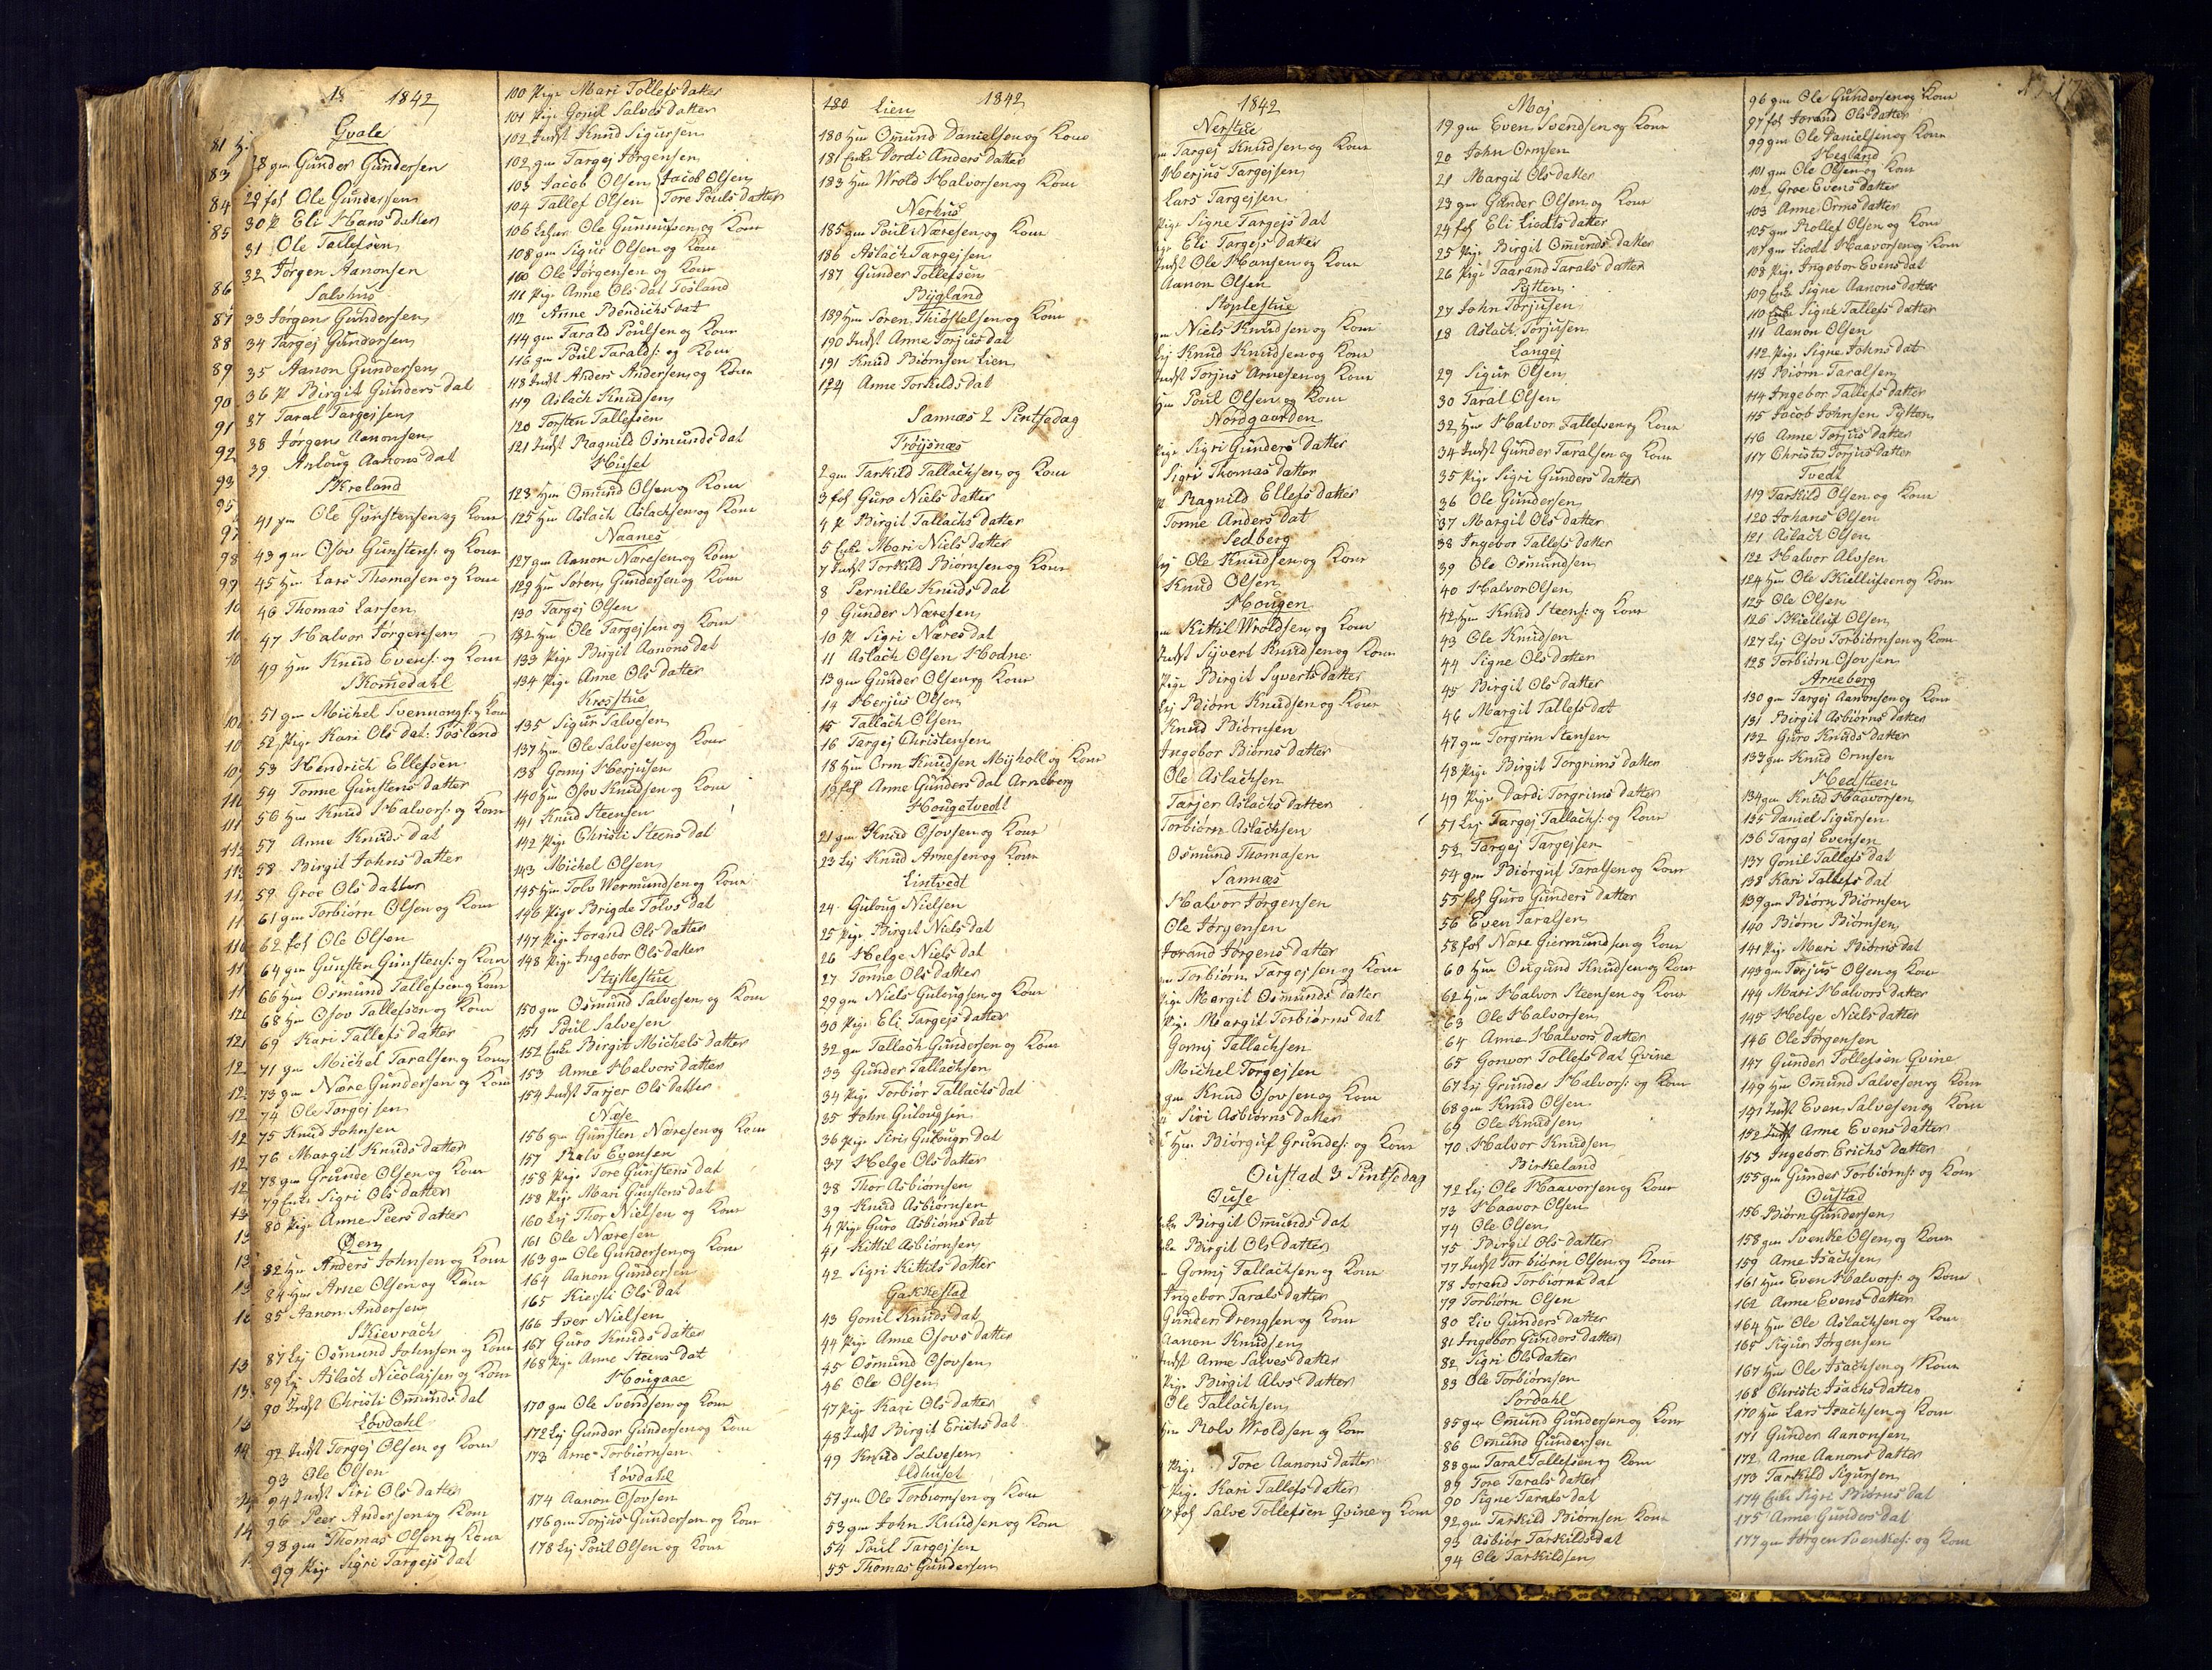 18 1842
Gvale
28 gm Gunder Gundersen
29 fol Ole Gundersen
30 P Eli Hans datter
31 Ole Tallefsen
32 Jørgen Aanonsen
Salvhus
33 Jørgen Gundersen
34 Targej Gundersen
35 Aanon Gundersen
36 P Birgit Gunders dat
37 Taral Targejsen
38 Jørgen Aanonsen
39 Aslaug Aanons dat
Skreland
41 gm Ole Gunstensen og Kone
43 gm Osov Gunstens: og Kone
45 Hm Lars Thomasen og Kone
46 Thomas Larsen
47 Halvor Jørgensen
49 Hm Knud Evens: og Kone
Skomedahl
51 gm Michel Svennungs: og Kone
52 Pige Kari Ols dat: Fosland
53 Hendrich Ellefsen
54 Tonne Gunstens datter
56 Hm Knud Halvors: og Kone
57 Anne Knuds dat
58 Birgit Johns datter
59 Groe Ols datter
61 gm Torbiørn Olsen og Kone
62 fol Ole Olsen
64 gm Gunsten Gunstens: og Kone
66 Hm Osmund Tallefsen og Kone
68 Hm Osov Tallefsen og Kone
69 Kari Tallefs datter
71 gm Michel Taralsen og Kone
73 gm Nære Gundersen og Kone
74 Ole Targejsen
75 Knud Johnsen
76 Margit Knuds datter
78 gm Grunde Olsen og Kone
79 Enke Sigri Ols datter
80 Pige Anne Peers datter
Øen
82 Hm Anders Johnsen og Kone
84 Hm Arne Olsen og Kone
85 Aanon Andersen
Skievrach
87 Lej Osmund Johnsen og Kone
89 Lej Aslach Nicolajsen og Kone
90 Indst Christi Omunds dat
Løvdahl
92 Indst Torgej Olsen og Kone
93 Ole Olsen
94 Indst Siri Ols datter
96 Peer Andersen og Kone
98 gm Thomas Olsen og Kone
99 Pige Sigri Targejs dat
100 Pige Mari Tollefs datter
101 Pige Gonil Salves datter
102 Indst Knud Sigursen
102 gm Targej Jørgensen
103 Jacob Olsen Jacob Olsen
104 Tallef Olsen Tore Pouls datter
106 Ole Gunnufsen og Kone
108 gm Sigur Olsen og Kone
100 Ole Jørgensen og Kone
111 Pige Anne Ols dat Fosland
112 Anne Bendichs dat
114 gm Tarald Poulsen og Kone
116 gm Poul Taralds: og Kone
118 Indst Anders Andersen og Kone
119 Aslach Knudsen
120 Torsten Tallefsen
121 Indst Ragnild Osmunds dat
Huset
123 Hm Omund Olsen og Kone
125 Hm Aslach Aslachsen og Kone
Naanes
127 gm Aanon Næresen og Kone
129 Hm Søren Gundersen og Kone
130 Targej Olsen
132 Hm Ole Targejsen og Kone
133 Pige Birgit Aanons dat
134 Pige Anne Ols datter
Krosstue
135 Sigur Salvesen
137 Hm Ole Salvesen og Kone
138 Gomij Herjusen
140 Hm Osov Knudsen og Kone
141 Knud Steensen
142 Pige Christi Steens dat
143 Michel Olsen
145 Hm Tolv Wermundsen og Kone
146 Pige Brigde Tolvs dat
147 Pige Jorand Ols datter
148 Pige Ingebor Ols datter
Styllestue
150 gm Osmund Salvesen og Kone
151 Poul Salvesen
152 Enke Birgit Michels datter
153 Anne Halvors datter
154 Indst Tarjer Ols datter
Nase
156 gm Gunsten Næresen og Kone
157 Rolv Evensen
158 Pige Tore Gunstens dat
158 Pige Mari Gunstens dat
160 Lej Thor Nielsen og Kone
161 Ole Næresen
163 gm Ole Gundersen og Kone
164 Aanon Gundersen
165 Kiersti Ols dat
166 Iver Nielsen
167 Guro Knuds datter
168 Pige Anne Steens dat
Hougaae
170 gm Ole Svendsen og Kone
172 Lej Gunder Gundersen og Kone
173 Arne Torbiørnsen
Løvdahl
174 Aanon Osovsen
176 gm Torjus Gundersen og Kone
178 Lej Poul Olsen og Kone
180 Lien 1842
180 Hm Omund Danielsen og Kone
181 Enke Dordi Anders datter
183 Hm Wrold Halvorsen og Kone
Nerhus
185 gm Poul Næresen og Kone
186 Aslach Targejsen
187 Gunder Tollefsen
Bygland
189 Hm Søren Thiøstelsen og Kone
190 Indst Anne Torjus dat
191 Knud Biørnsen Lien
124 Anne Torkilds dat
Sannæs 2 Pintsedag
Frøysnæs
2 gm Tarkild Tallachsen og Kone
3 fol Guro Niels datter
4 P Birgit Tallachs datter
5 Enke Mari Niels datter
7 Indst Torkild Biørnsen og Kone
8 Pernille Knuds dat
9 Gunder Næresen
10 P Sigri Næres dat
11 Aslach Olsen Hodne
13 gm Gunder Olsen og Kone
14 Herjus Olsen
15 Tallach Olsen
16 Targej Christensen
18 Hm Orm Knudsen Mijholl og Kone
19 fol Anne Gunders dat Arneberg
Hougetvedt
21 gm Knud Osovsen og Kone
23 Lej Knud Arnesen og Kone
Lintvedt
24 Guloug Nielsen
25 Pige Birgit Niels dat
26 Helge Niels dat
27 Tonne Ols datter
29 gm Niels Gulougsen og Kone
30 Pige Eli Targejs datter
32 gm Tallach Gundersen og Kone
33 Gunder Tallachsen
34 Pige Torbiør Tallachs dat
35 John Gulougsen
36 Pige Siri Gulougs dat
37 Helge Ols datter
38 Thor Asbiørnsen
39 Knud Asbiørnsen
4 Pige Guro Asbiørns dat
41 Kittil Asbiørnsen
42 Sigri Kittils datter
Gakkestad
43 Gonil Knuds dat
44 Pige Anne Osovs datter
45 Osmund Osovsen
46 Ole Olsen
47 Pige Kari Ols datter
48 Indst Birgit Erichs dat
49 Knud Salvesen
Ildhuset
51 gm Ole Torbiørnsen og Kone
53 gm John Knudsen og Kone
54 Poul Targejsen
55 Thomas Gundersen
1842
Nerstue
Targej Knudsen og Kone
Herjus Targejsen
Lars Targejsen
Pige Signe Targejs dat
Eli Targejs datter
Indst Ole Hansen og Kone
Aanon Olsen
Stoplestue
Niels Knudsen og Kone
Lej Knud Knudsen og Kone
Indst Torjus Arnesen og Kone
Hm Poul Olsen og Kone
Nordgaarden
Pige Sigri Gunders datter
Sigri Thomas datter
P Ragnild Ellefs datter
Tonne Anders dat
Sedberg
Ole Knudsen og Kone
Knud Olsen
Hougen
Kittil Wroldsen og Kone
Indst Sijvert Knudsen og Kone
Pige Birgit Syverts datter
Lej Biørn Knudsen og Kone
Knud Biørnsen
Ingebor Biørns datter
Ole Aslachsen
Tarjer Aslachs datter
Torbiørn Aslachsen
Osmund Thomasen
Sannæs
Halvor Jørgensen
Ole Jørgensen
Jorand Jørgens datter
Torbiørn Targejsen og Kone
Pige Margit Osmunds datter
Pige Margit Torbiørns dat
Gomij Tallachsen
Michel Torgejsen
gm Knud Osovsen og Kone
Siri Asbiørns datter
Hm Biørguf Grundes: og Kone
Oustad 3 Pintsedag
Ouse
Birgit Omunds dat
Birgit Ols datter
Gomij Tallachsen og Kone
Ingebor Tarals datter
Gunder Drengsen og Kone
Aanon Knudsen
Indst Anne Salves datter
Pige Birgit Alvs datter
Ole Tallachsen
Hm Rolv Wroldsen og Kone
Pige Tore Aanons datter
Pige Kari Tallefs datter
17 fol Salve Tollefsen Qvine og Kone
Moj
19 gm Even Svendsen og Kone
20 John Ormsen
21 Margit Ols datter
23 gm Gunder Olsen og Kone
24 fol Eli Liodts datter
25 Pige Birgit Omunds datter
26 Pige Taarand Tarals datter
Pytten
27 John Torjusen
28 Aslach Torjusen
Langej
29 Sigur Olsen
30 Taral Olsen
32 Hm Halvor Tallefsen og Kone
34 Indst Gunder Taralsen og Kone
35 Pige Sigri Gunders datter
36 Ole Gundersen
37 Margit Ols datter
38 Ingebor Tallefs datter
39 Ole Osmundsen
40 Halvor Olsen
42 Hm Knud Steens: og Kone
43 Ole Knudsen
44 Signe Ols datter
45 Birgit Ols datter
46 Margit Tallefs dat
47 gm Torgrim Stensen
48 Pige Birgit Torgrims datter
49 Pige Dardi Torgrims datter
51 Lej Targej Tallachs: og Kone
52 Targej Targejsen
54 gm Biørguf Taralsen og Kone
55 fol Guro Gunders datter
56 Even Taralsen
58 fol Nære Giermundsen og Kone
60 Hm Ougund Knudsen og Kone
62 Hm Halvor Steensen og Kone
63 Ole Halvorsen
64 Anne Halvors datter
65 Gonvor Tollefs dat Qvine
67 Lej Grunde Halvors: og Kone
68 gm Knud Olsen
69 Ole Knudsen
70 Halvor Knudsen
Birkeland
72 Lej Ole Haavorsen og Kone
73 Haavor Olsen
74 Ole Olsen
75 Birgit Ols datter
77 Indst Torbiørn Olsen og Kone
78 Jorand Torbiørns dat
79 Torbiørn Olsen
80 Liv Gunders datter
81 Ingebor Gunders datter
82 Sigri Ols datter
83 Ole Torbiørnsen
Sordahl
85 gm Omund Gundersen og Kone
86 Omund Gundersen
88 gm Taral Tallefsen og Kone
89 Tore Tarals datter
90 Signe Tarals dat
92 gm Tarkild Biørnsen Kone
93 Asbiør Tarkilds dat
94 Ole Tarkildsen
96 gm Ole Gundersen og Kone
97 fol Jorand Ols datter
99 gm Ole Danielsen og Kone
Hegland
101 gm Ole Olsen og Kone
102 Groe Evens datter
103 Anne Orms datter
105 gm Rollef Olsen og Kone
107 gm Liodt Haavorsen og Kone
108 Pige Ingebor Evens dat
109 Enke Signe Aanons datter
110 Enke Signe Tallefs datter
111 Aanon Olsen
112 Pige Signe Johns dat
113 Biørn Taralsen
114 Ingebor Tallefs datter
115 Jacob Johnsen Pytten
116 Anne Torjus datter
117 Christi Torjus datter
Tvedt
119 Tarkild Olsen og Kone
120 Johans Olsen
121 Aslach Olsen
122 Halvor Alvsen
124 Hm Ole Skiellufsen og Kone
125 Ole Olsen
126 Skielluf Olsen
127 Lej Osov Torbiørnsen og Kone
128 Torbiørn Osovsen
Arneberg
130 gm Targej Aanonsen og Kone
131 Birgit Asbiørns datter
132 Guro Knuds datter
133 gm Knud Ormsen
Hedsteen
134 gm Knud Haavorsen
135 Daniel Sigursen
136 Targej Evensen
137 Gonil Tallefs dat
138 Kari Tallefs dat
139 gm Biørn Biørnsen
140 Biørn Biørnsen
141 Pige Mari Biørns dat
143 gm Torjus Olsen og Kone
144 Mari Halvors datter
145 Helge Niels datter
146 Ole Jørgensen
147 Gunder Tollefsen Qvine
149 Hm Omund Salvesen og Kone
151 Indst Even Salvesen og Kone
152 Indst Arne Evens datter
153 Ingebor Erichs datter
155 gm Gunder Torbiørns: og Kone
Oustad
156 Biørn Gundersen
158 gm Svenke Olsen og Kone
159 Arne Isachsen
161 Hm Even Halvors: og Kone
162 Anne Evens datter
164 Hm Ole Aslachsen og Kone
165 Sigur Jørgensen
167 Hm Ole Isachsen og Kone
168 Christi Isachs datter
170 Hm Lars Isachsen og Kone
171 Gunder Aanonsen
172 Anne Aanons datter
173 Tarkild Sigursen
174 Enke Sigri Biørns dat
175 Anne Gunders dat
177 gm Jørgen Svenkes: og Kone